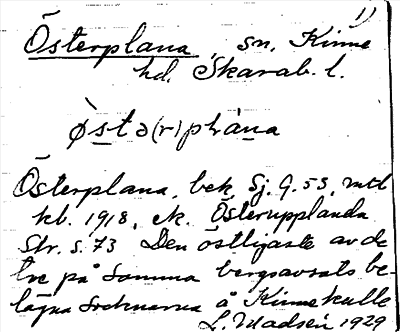 1)
Österplana, sn, Kinne
hd, Skarab. l.
òstə(r)plàna
Österplana, bek, Sj. G. 53, mtl
kb. 1918, ek. Österupplanda
Str. s. 73 Den östligaste av de
tre på samma bergsavsats be-
lägna socknarna å Kinnekulle
L. Madsén 1929